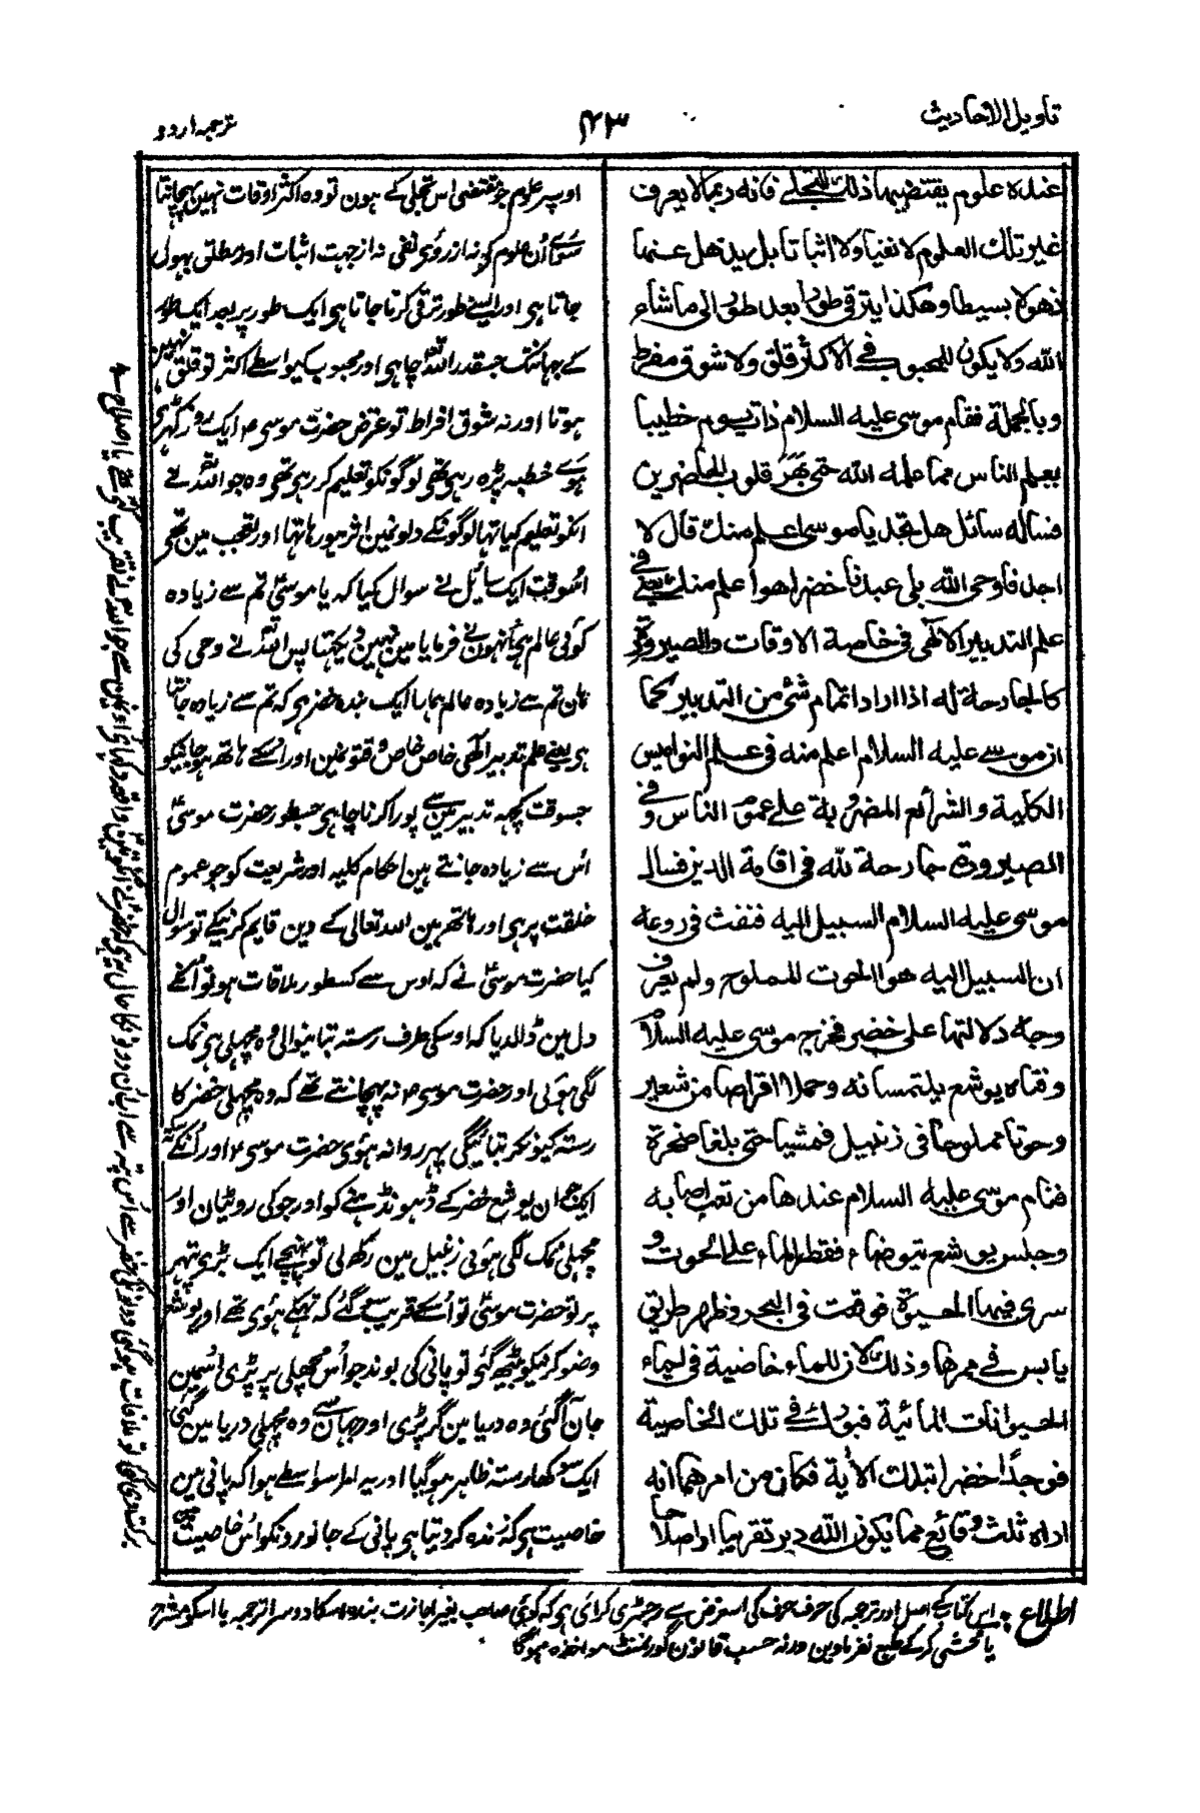 تاویل الاحادیث
۴۳
ترجمہ اردو
عنده علوم يقتضيها ذلك التجلے فانه ربما لا يعرف
غير تلك العلوم لا نفيا ولا اثباتا بل يذهل عنها
ذهولا بسيطا وهكذا يترقى طورا بعد طور الى ما شاء
الله ولا يكون للمحبوب فے الاكثر قلق ولا شوق مفرط
وبالجملة فقام موسى عليه السلام ذات يوم خطيبا
يعلم الناس مما علمه الله حتى قلوب الحاضرين
فساله سائل هل تجد يا موسى اعلم منك قال لا
اجد فاوحى الله بلى عبدنا خضر هو اعلم منك يعنے فے
علم التدبير الالٰهى فى خاصة الاوقات والصيرورة
كالجارحة له اذا اراد اتمام شئ من التدبير كما
ان موسے عليه السلام اعلم منه فى علم النواميس
الكلية والشرائع المضروبة علے عموم الناس وفے
الصيرورة جارحة لله فى اقامة الدين فسال
موسى عليه السلام السبيل اليه فنفث فى روعه
ان السبيل اليه هو الحوت المملوح ولم يعرف
وجه دلالتها على خضر فخرج موسى عليه السلام
وفتاه يوشع يلتمسانه وحملا اقراصا من شعير
وحوتا مملوحا فى زنبيل فمشيا حتى بلغا صخرة
فنام موسى عليه السلام عندها من تعب اصابه
وجلس يوشع يتوضاء فقطر الماء على الحوت و
سرى فيها الحيوة فوقعت فى البحر وظهر طريق
يابس فے ممرها وذلك لان للماء خاصية فى احياء
الحيوانات المائية فبورك فے تلك الخاصية
فوجدا خضرا بتلك الاٰية فكان من امرهما انه
اراه ثلث وقائع مما يكون الله دبر تقريبا او اصلاحا
اور پہر علوم جو مقتضی اس تجلی کے ہون تو وہ اکثر اوقات نہین پہچانتا
سوائے اُن علوم کو نہ از روی نفی نہ از جہت اثبات اور مطلق بہول
جاتا ہی اور ایسے طور ترقی کرتا جاتا ہی ایک طور پر بعد ایک طور
کے جہانتک جسقدر اللہ چاہی اور محبوب کیواسطے اکثر تو قلق نہین
ہوتا اور نہ شوق افراط تو غرض حضرت موسی ایک روز کہڑی
ہوے خطبہ پڑہ رہی تھی لوگونکو تعلیم کر رہی تھی وہ جو اللہ نے
انکو تعلیم کیا تہا لوگونکے دلونمین اثر ہو رہا تہا اور تعجب مین تھی
اسوقت ایک سائل نے سوال کیا کہ یا موسیٰ تم سے زیادہ
کوئی عالم ہی اُنہون نے فرمایا مین نہین دیکہتا پس اللہ نے وحی کی
ہان تم سے زیادہ عالم ہمارا ایک بندہ خضر ہی کہ تم سے زیادہ جانتا
ہی یعنے علم تدبیر الٰہی خاص خاص وقتونمین اور اسکے ہاتھ ہو جانیکو
جسوقت کچہہ تدبیر مین سے پورا کرنا چاہی جسطور حضرت موسیٰ
اُس سے زیادہ جانتے ہین احکام کلیہ اور شریعت کو جو عموم
خلقت پر ہی اور ہاتھ ہین اللہ تعالی کے دین قایم کرنیکے تو سوال
کیا حضرت موسیٰ نے کہ اوس سے کسطور ملاقات ہو تو اُنکے
دل مین ڈالدیا کہ اوسکی طرف رستہ بتانیوالی وہ مچہلی ہی نمک
لگی ہوئی اور حضرت موسی نہ پہچانتے تھے کہ وہ مچہلی خضر کا
رستہ کیونکر بتائیگی پہر روانہ ہوئی حضرت موسی اور اُنکے ساتھ
ایک جوان یوشع خضر کے ڈہونڈہنے کو اور جو کی روٹیان اور
مچہلی نمک لگی ہوئی زنبیل مین رکھہ لی تو پہنچے ایک بڑی پتہر
پر تو حضرت موسیٰ تو اُسکے قریب سو گئے کہ تہکے ہوئی تھے اور یوشع
وضو کرنیکو بیٹھہ گئی تو پانی کی بوند جو اُس مچہلی پر پڑی اُسمین
جان آگئی وہ دریا مین گر پڑی اور جہان سے وہ مچہلی دریا مین گئی
ایک سوکھا رستہ ظاہر ہو گیا اور یہ امر اسواسطے ہوا کہ پانی مین
خاصیت ہی کہ زندہ کر دیتا ہی پانی کے جانورونکو اُس خاصیت
اطلاع: اس کتاب کے اصل اور ترجمہ کی حرف حرف کی اسغرض سے رجسٹری کرائی ہی کہ کوئی صاحب بغیر اجازت بندہ اسکا دوسرا ترجمہ یا اسکو مشرح
یا محشی کر کے طبع نفرماوین ورنہ حسب قانون گورنمنٹ مواخذہ ہوگا